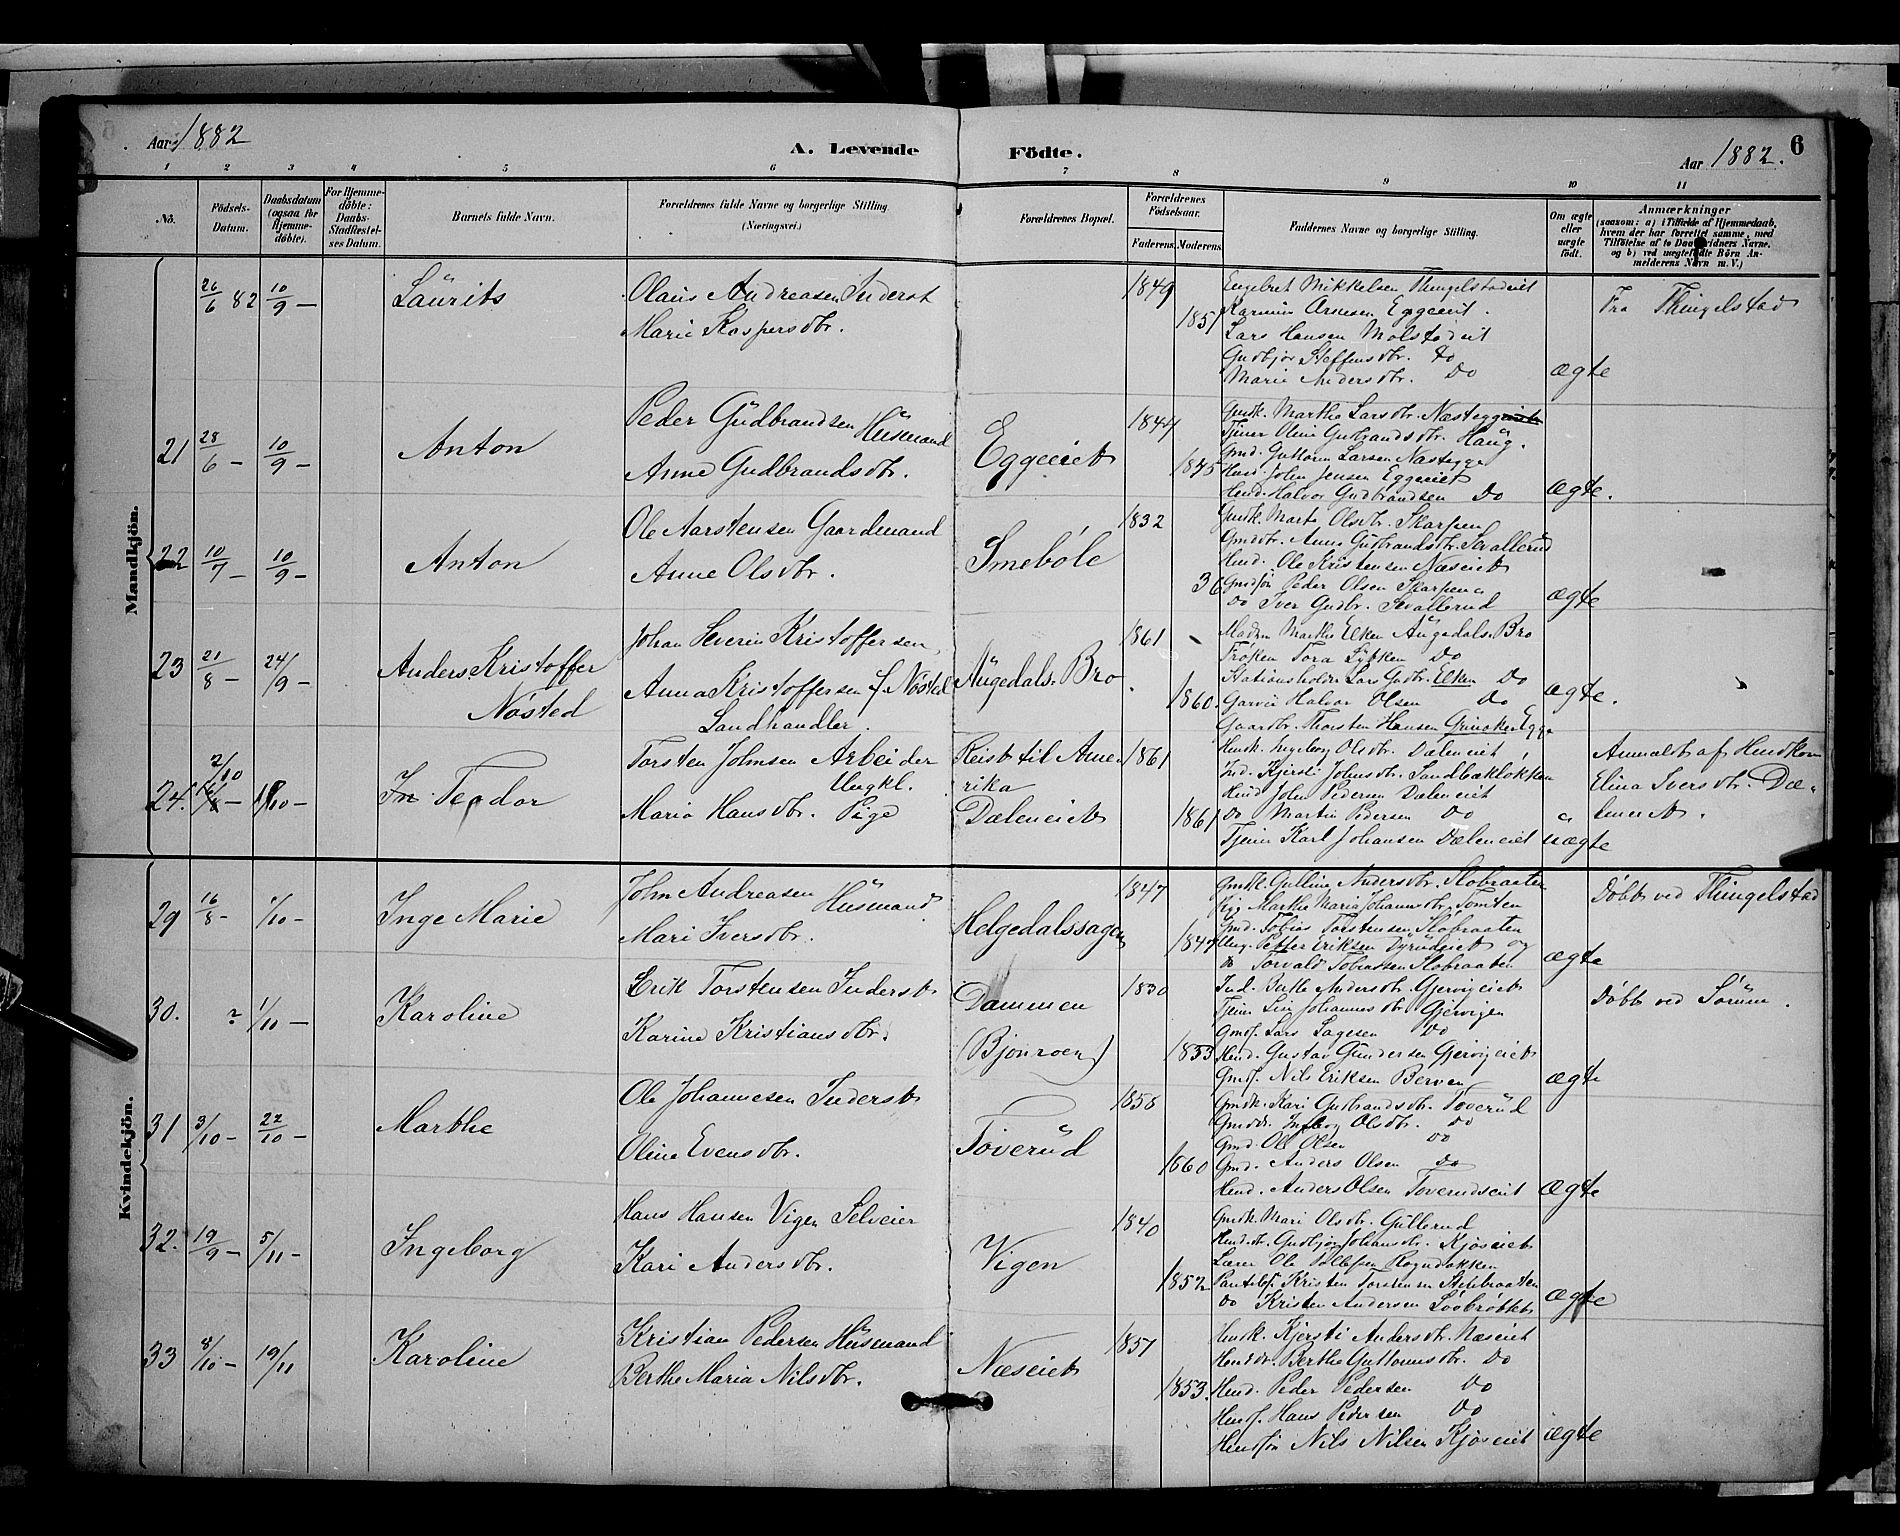 Aar 1882
A. Levende Födte.
Aar 1882. 6
1 2 3 4 5 6 7 8 9 10 11
No. Födsels-Datum. Daabsdatum (ogsaa for Hjemmedöbte). For Hjemmedöbte: Daabs-Stadfæstelses Datum. Barnets fulde Navn. Forældrenes fulde Navne og borgerlige Stilling. (Næringsvei.) Forældrenes Bopæl. Forældrenes Födselsaar. Faderens. Moderens. Faddernes Navne og borgerlige Stilling. Om ægte eller uægte födt. Anmærkninger (saasom: a) i Tilfælde af Hjemmedaab, hvem der har forrettet samme, med Tilföielse af to Daabsvidners Navne, og b) ved uægtefødte Börn Anmelderens Navn m. V.)
Mandkjön.
26/6 82 10/9 — Laurits
Olaus Andreasen Inderst
Marie Kaspersdtr.
1849
1851
Engebret Mikkelsen Thingelstadeiet
Karinius Arnesen Eggeeiet.
Lars Hansen Molstadeit
Gudbjør Steffensdtr. Do
Marie Andersdtr. Do
ægte
Fra Thingelstad
21 28/6 — 10/9 — Anton
Peder Gudbrandsen Husmand
Anne Gudbrandsdtr.
Eggeeiet
1844
1845
Gmdk. Marthe Larsdtr. Næstegge
Tjener Oline Gutbrandsdtr. Haug.
Gmd. Guttorm Larsen Næstegge
Husd. John Jensen Eggeeiet
Hmd. Halvor Gudbrandsen Do
ægte.
22 10/7 — 10/9 — Anton
Ole Aarstensen Gaardmand
Anne Olsdtr.
Smebøle
1832
36
Gmdk. Marte Olsdtr. Skarpen
Gmddtr. Anne Gutbrandsdtr. Sevallerud
Hmd. Ole Kristensen Næseiet
Gmdsøn Peder Olsen Skarpen
Do Iver Gudbr. Sevallerud
ægte
23 21/8 — 24/9 — Anders Kristoffer Nøsted
Johan Severin Kristoffersen,
Anna Kristoffersen f. Nøsted
Landhandler.
Augedals Bro.
1861
1860.
Madm Marthe Elken Augedals Bro
Frøken Tora Lybken Do
Stationsholder Lars Gudbr. Elken Do
Garver Halvor Olsen Do
Gaardbr. Thorsten Hansen Grinaker Egge
ægte.
24. 2/10 — Teodor
Torsten Johnsen Arbeider Ungkl.
Maria Hansdtr. Pige
Reist til Amerika
Dæleneiet
1861
1861
Husk. Ingeborg Olsdtr. Dæleneiet
Ind. Kjersti Johnsdtr. Sandbakløkken
Hmd John Pedersen Dæleneiet
Do Martin Pedersen Do
Tjener Karl Johansen Dæleneiet
uægte
Anmeldt af Husmdkone
Elina Iversdtr. Dæleneiet.
Kvindekjön.
29 16/8 — 1/10 — Inge Marie
John Andreasen Husmand
Mari Iversdtr.
Helgedalssagen
1847
1847
Gmdk. Gulline Andersdtr. Slobraaten
Pige Marthe Maria Johannsdtr. Tomten
Gmd. Tobias Torstensen Slobraaten
Ung. Petter Eriksen Dyrudeiet og
Do Torvald Tobiassen Slobraaten
ægte
Døbt ved Thingelstad
30. ? 1/10 — Karoline
Erik Torstensen Inderst
Karine Kristiansdtr.
Dammen
(Bjonroen)
1830
1833
Ind. Andersdtr. Gjervigeiet
Tjener Johannesdtr. Gjervigen
Gmdf. Lars Lagesen Do
Hmd. Gustav Gundersen Gjervigeiet
Gmdf. Nils Eriksen Berven
ægte
Døbt ved Sørum.
31 3/10 — 22/10 — Marthe
Ole Johannesen Inderst
Oline Evensdtr.
Toverud
1858
1860
Gmdk. Kari Gudbrandsdtr. Toverud
Gmddtr. Ingeborg Olsdtr. Do
Gmd. Ole Olsen Do
Gmd. Anders Olsen Do
Hmd. Anders Olsen Toverudseiet
ægte
32. 19/9 — 5/11 — Ingeborg
Hans Hansen Vigen Selveier
Kari Andersdtr.
Vigen
1840
1852
Gmdk. Mari Olsdtr. Gullerud
Hmddtr. Gudbjør Johansdtr. Kjøseiet
Lærer Ole Pollefsen Rogndokken
Panteløf. Kristen Torstensen Stenbraaten
Do Kristen Andersen Sobrøttet
ægte
33 8/10 — 19/11 Karoline
Kristian Pedersen Husmand
Berthe Maria Nilsdtr.
Næseiet
1851
1853.
Hmdk. Kjersti Andersdtr. Næseiet
Hmddtr. Berthe Guttormsdtr. Do
Hmd. Peder Pedersen Do
Hmdf. Hans Pedersen Do
Hmdsøn Nils Nilsen Kjøseiet
ægte